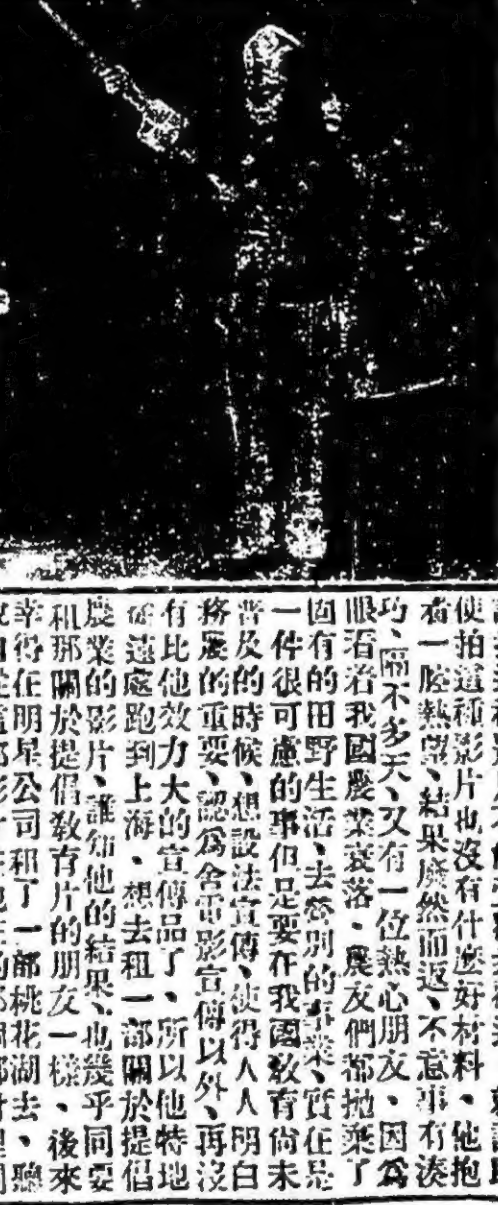 使拍這種影片也沒有什麼好材料、他抱
着一腔熱望、結果廢然而返、不意事有湊
巧、隔不多天、又有一位熱心朋友、因爲
眼看着我國農業衰落、農友們都拋棄了
固有的田野生活、去營別的事業、實在是
一件很可慮的事但是要在我國敎育尙未
普及的時候、想設法宣傳、使得人人明白
務農的重要、認爲舍電影宣傳以外、再沒
有比他效力大的宣傳品了、所以他特地
從遠處跑到上海、想去租一部關於提倡
農業的影片、誰知他的結果、也幾乎同要
和那關於提倡敎育片的朋友一樣、後來
幸得在明星公司租了一部桃花湖去、聽